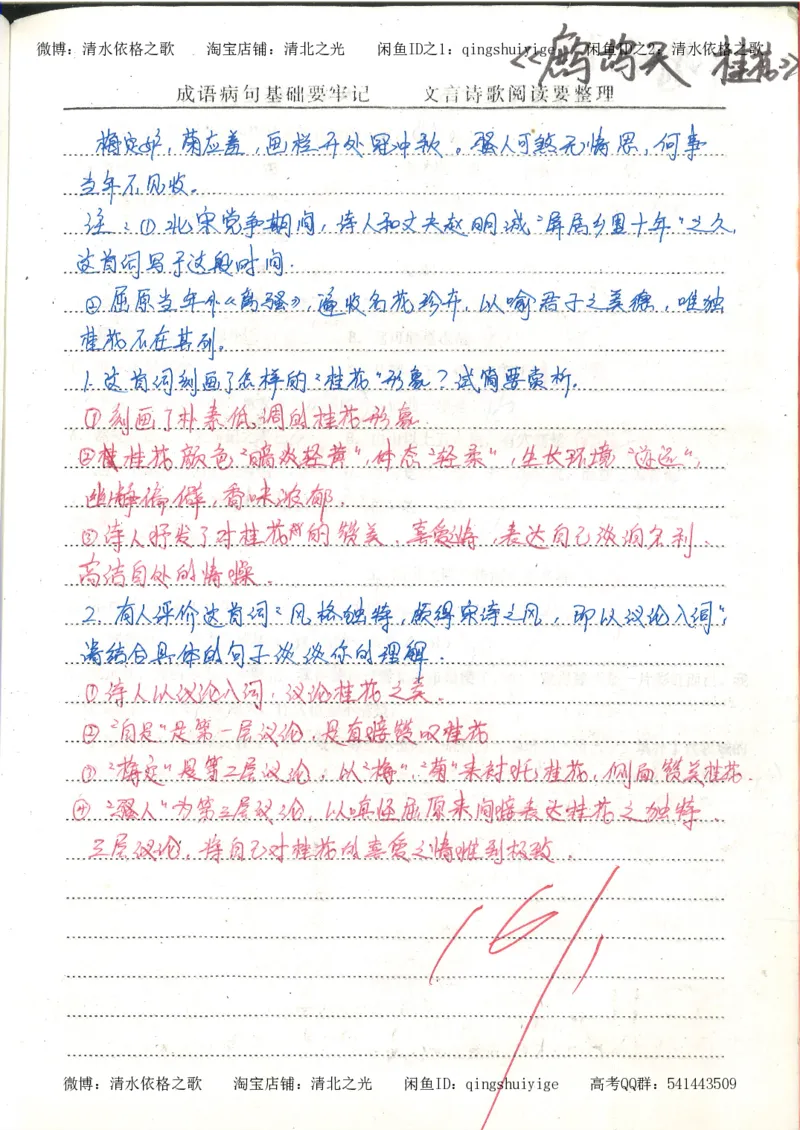 微博：清水依格之歌 淘宝店铺：清北之光 闲鱼ID之1：qingshuiyige 闲鱼ID之2：清水依格之歌
《鹧鸪天 桂花》
成语病句基础要牢记 文言诗歌阅读要整理
梅定妒，菊应羞，画栏开处冠中秋。骚人可煞无情思，何事
当年不见收。
注：①北宋党争期间，诗人和丈夫赵明诚"屏居乡里十年"之久，
这首词写于这段时间．
②屈原当年作《离骚》，遍收名花珍卉，以喻君子之美德，唯独
桂花不在其列。
1.这首词刻画了怎样的"桂花"形象？试简要赏析．
①刻画了朴素低调的桂花形象．
②桂花颜色"暗淡轻黄"，体态"轻柔"，生长环境"迹远"，
幽静偏僻，香味浓郁．
③诗人抒发了对桂花的赞美、喜爱情，表达自己淡泊名利、
高洁自处的情操．
2．有人评价这首词"风格独特，颇得宋诗之风，即以议论入词"，
请结合具体的句子谈谈你的理解．
①诗人以议论入词，议论桂花之美．
②"自是"是第一层议论，是直接赞叹桂花
③"梅定"是第二层议论，以"梅"、"菊"来衬托桂花，侧面赞美桂花．
④"骚人"为第三层议论，以嗔怪屈原来间接表达桂花之独特．
三层议论，将自己对桂花的喜爱之情推到极致．
微博：清水依格之歌 淘宝店铺：清北之光 闲鱼ID：qingshuiyige 高考QQ群：541443509